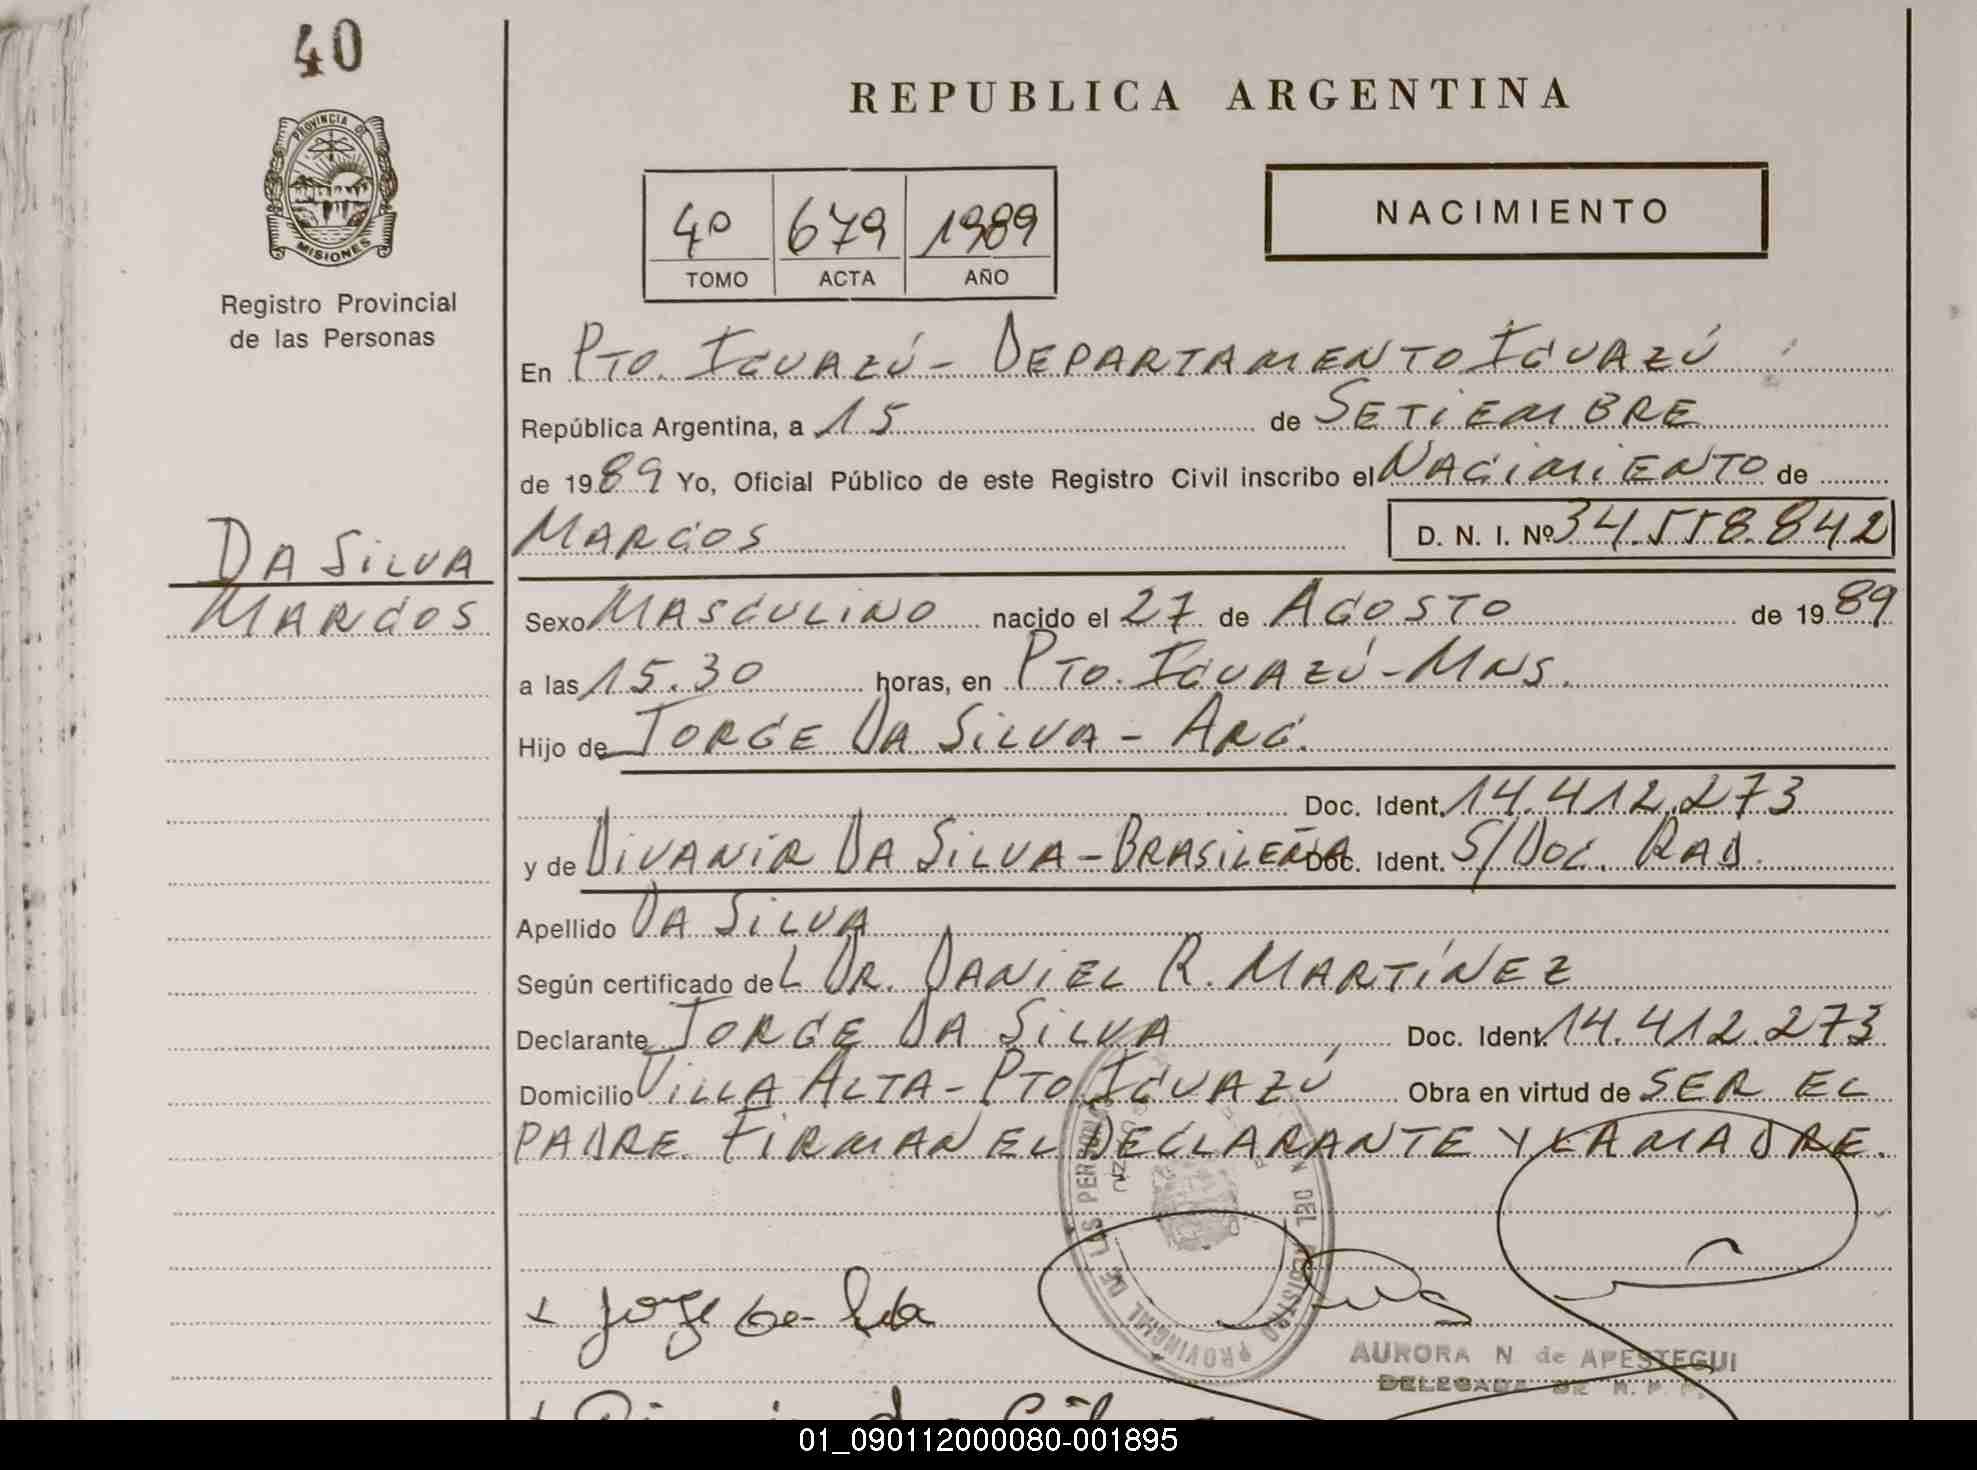 40
PROVINCIA DE
MISIONES
Registro Provincial
de las Personas
DA SILVA
MARCOS
REPUBLICA ARGENTINA
4º 679 1989
TOMO ACTA AÑO
NACIMIENTO
En PTO. IGUAZÚ - DEPARTAMENTO IGUAZÚ
República Argentina, a 15 de SETIEMBRE
de 1989 Yo, Oficial Público de este Registro Civil inscribo el NACIMIENTO de
MARCOS D. N. I. Nº 34.558.842
Sexo MASCULINO nacido el 27 de AGOSTO de 1989
a las 15.30 horas, en PTO. IGUAZÚ - MNS.
Hijo de JORGE DA SILVA - ARG.
Doc. Ident. 14.412.273
y de DIVANIR DA SILVA - BRASILEÑA Doc. Ident. S/DOC. RAD.
Apellido DA SILVA
Según certificado deL DR. DANIEL R. MARTÍNEZ
Declarante JORGE DA SILVA Doc. Ident. 14.412.273
Domicilio VILLA ALTA - PTO IGUAZÚ Obra en virtud de SER EL
PADRE. FIRMAN EL DECLARANTE Y LA MADRE.
REGISTRO PROVINCIAL DE LAS PERSONAS
x Jorge da Silva
AURORA N de APESTEGUI
DELEGADA DE R. P. P.
01_090112000080-001895